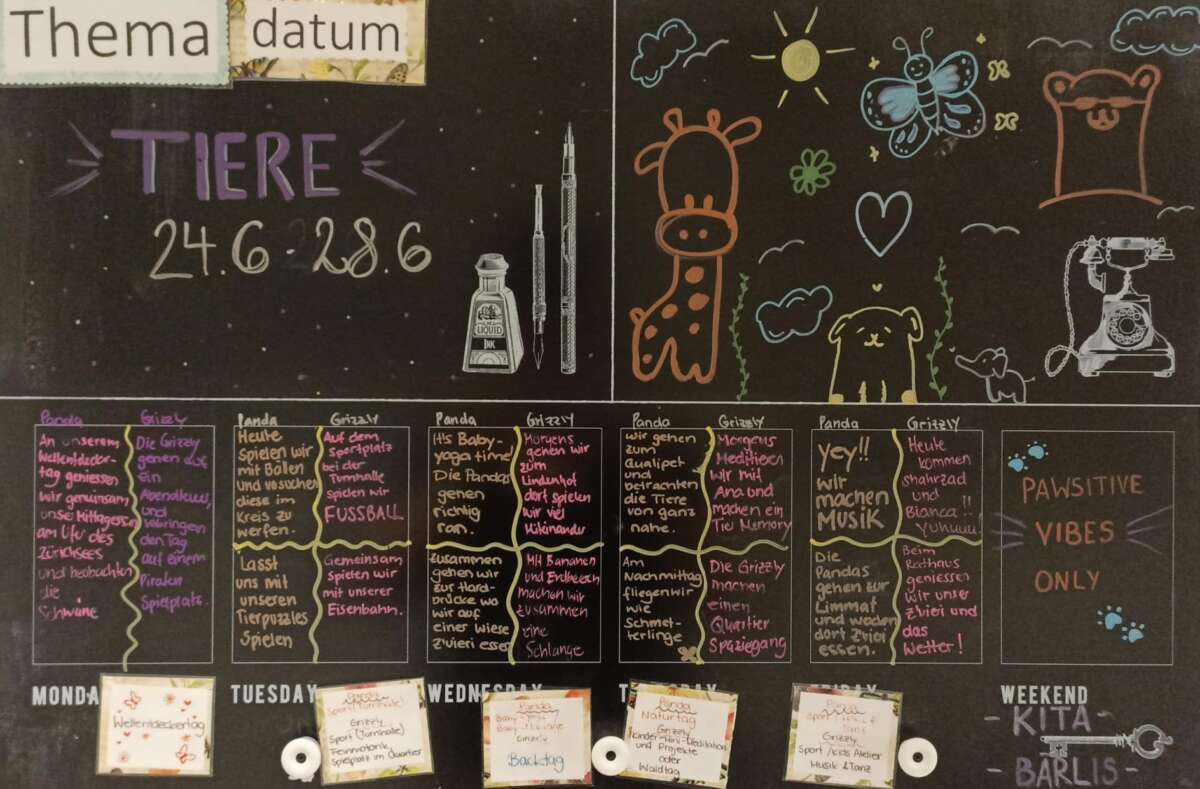 Thema
datum
TIERE
24.6 - 28.6
LIQUID
INK
Panda
An unserem
Weltentdecker-
tag geniessen
wir gemeinsam
unser Mittagessen
am Ufer des
Zürichsees
und beobachten
die
Schwäne
Grizzly
Die Grizzly
gehen auf
ein
Abendteuer,
und
verbringen
den Tag
auf einem
Piraten
Spielplatz.
MONDA
Weltentdeckertag
Panda
Heute
spielen wir
mit Bällen
und vesuchen
diese im
Kreis zu
werfen.
Lasst
uns mit
unseren
Tierpuzzles
Spielen
Grizzly
Auf dem
Sportplatz
bei der
Turnhalle
spielen wir
FUSSBALL
Gemeinsam
spielen wir
mit unserer
Eisenbahn.
TUESDAY
Panda
Sport (Turnhalle)
Grizzly
Sport (Turnhalle)
Feinmotorik
Spielplatz im Quartier
Panda
It's Baby-
yoga time!
Die Pandas
gehen
richtig
ran.
zusammen
gehen wir
zur Hard-
brücke wo
wir auf
einer Wiese
zvieri essen
Grizzly
Morgens
gehen wir
zum
Lindenhof
dort spielen
wir viel
Miteinander
Mit Bananen
und Erdbeeren
machen wir
zusammen
eine
Schlange
WEDNESDAY
Panda
Baby-Yoga
Grizzly
Backtag
Panda
wir gehen
zum
Qualipet
und
betrachten
die Tiere
von ganz
nahe.
Am
Nachmittag
fliegen wir
wie
Schmet-
terlinge
Grizzly
Morgens
Meditieren
wir mit
Ana und
machen ein
Tier Memory
Die Grizzly
machen
einen
Quartier
Spaziegang
Panda
Naturtag
Grizzly
Kinder-Mini-Meditation
und Projekte
oder
Waldtag
Panda
yey!!
wir
machen
MUSIK
Die
Pandas
gehen zur
Limmat
und werden
dort zvieri
essen.
Grizzly
Heute
kommen
shahrzad
und
Bianca!!
Yuhuuu!
Beim
Redhaus
geniessen
wir unser
z'vieri und
das
Wetter!
Panda
Grizzly
Sport/Kids Atelier
Musik & Tanz
PAWSITIVE
VIBES
ONLY
WEEKEND
- KITA
BÄRLIS -